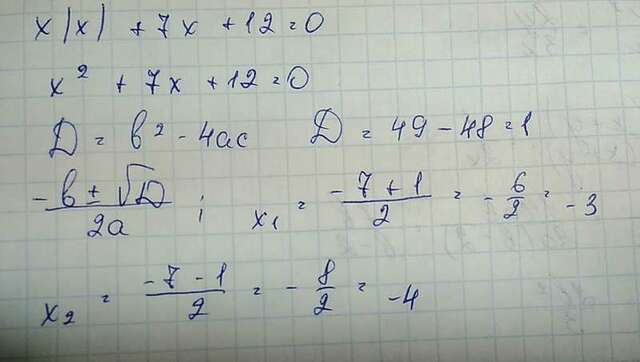 x|x| + 7x + 12 = 0
x² + 7x + 12 = 0
D = b² - 4ac D = 49 - 48 = 1
(-b ± √D)/(2a) ; x₁ = (-7 + 1)/2 = -6/2 = -3
x₂ = (-7 - 1)/2 = -8/2 = -4